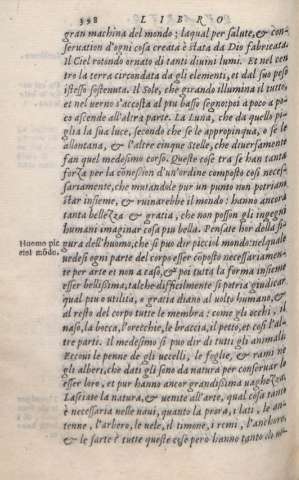 398 LIBRO
gran machina del mondo: laqual per salute, & con-
seruation d'ogni cosa creata è stata da Dio fabricata.
Il Ciel rotondo ornato di tanti diuini lumi. Et nel cen
tro la terra circondata da gli elementi, et dal suo peso
istesso sostenuta. Il Sole, che girando illumina il tutto,
et nel uerno s'accosta al piu basso segno; poi a poco a po-
co ascende all'altra parte. La Luna, che da quello pi-
glia la sua luce, secondo che se le appropinqua, o se le
allontana, & l'altre cinque Stelle, che diuersamente
fan quel medesimo corso. Queste cose tra se han tanta
forza per la cōnesion d'un'ordine composto cosi neces-
sariamente, che mutandole pur un punto non potriano
star insieme, & ruinarebbe il mondo: hanno ancora
tanta bellezza & gratia, che non posson gli ingegni
humani imaginar cosa piu bella. Pensate hor della fi-
Huomo pic
ciol mōdo.
gura dell'huomo, che si puo dir picciol mondo: nel quale
uedesi ogni parte del corpo esser cōposto necessariamen-
te per arte et non a caso, & poi tutta la forma insieme
esser bellissima, tal che difficilmente si potria giudicar,
qual piu o utilità, o gratia diano al uolto humano, &
al resto del corpo tutte le membra: come gli occhi, il
naso, la bocca, l'orecchie, le braccia, il petto, et cosi l'al-
tre parti. Il medesimo si puo dir di tutti gli animali.
Eccoui le penne de gli uccelli, le foglie, & rami ne
gli alberi, che dati gli sono da natura per conseruar lo
esser loro, et pur hanno ancor grandissima uaghezza.
Lasciate la natura, & uenite all'arte, qual cosa tanto
è necessaria nelle naui, quanto la prora, i lati, le an-
tenne, l'arbero, le uele, il timone, i remi, l'anchore,
& le sarte è tutte queste cose però hanno tanto del ue-